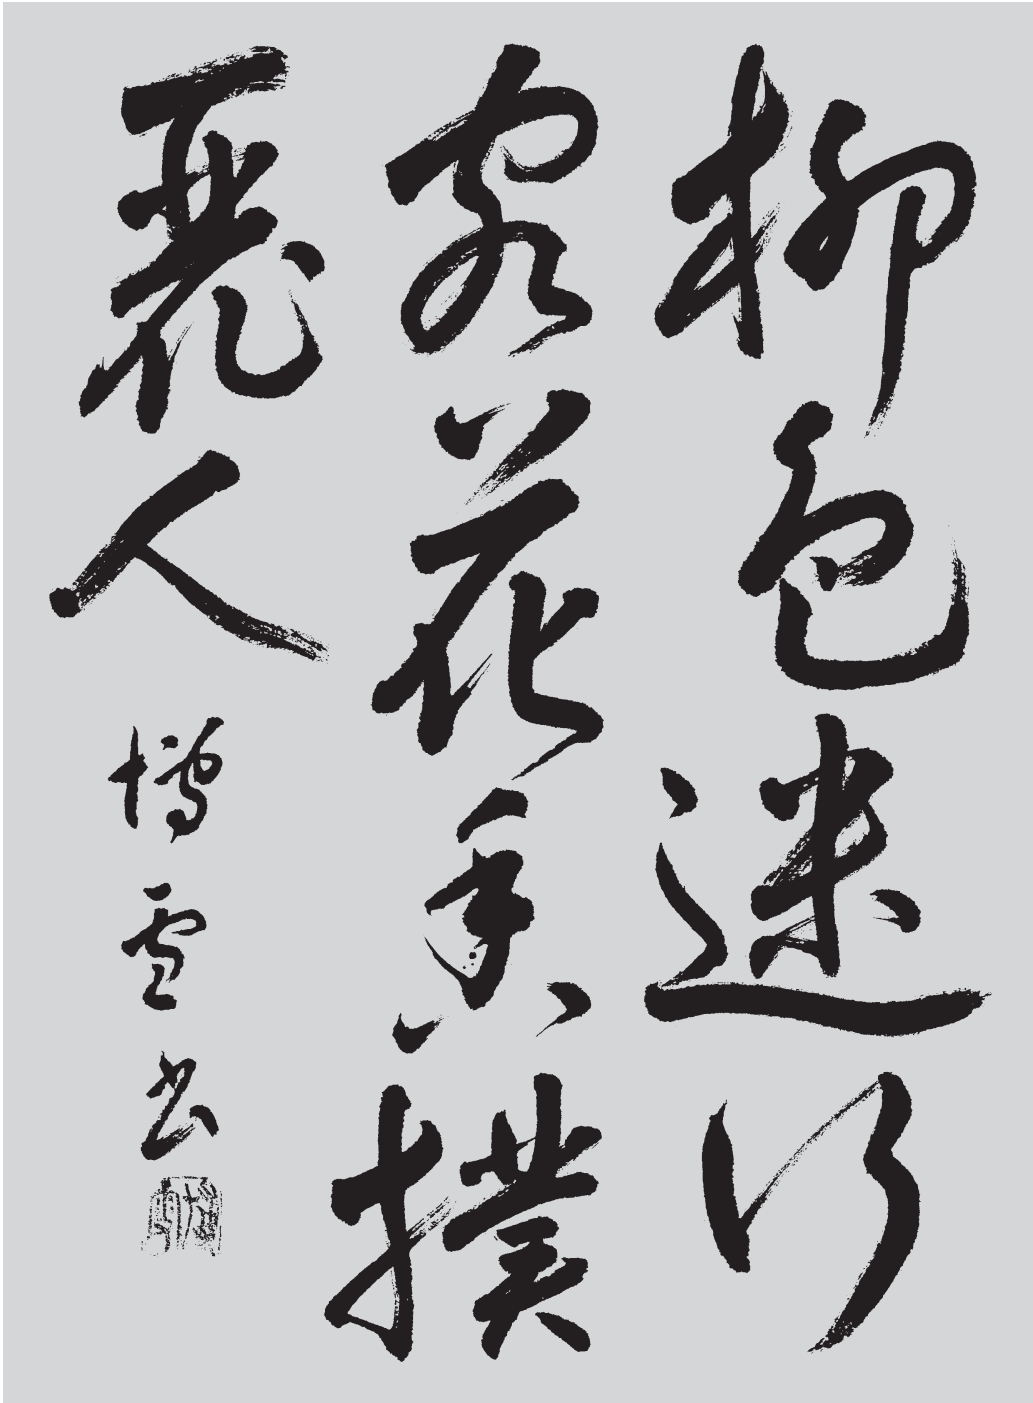 柳色迷行
客花香撲
麗人
博雪書